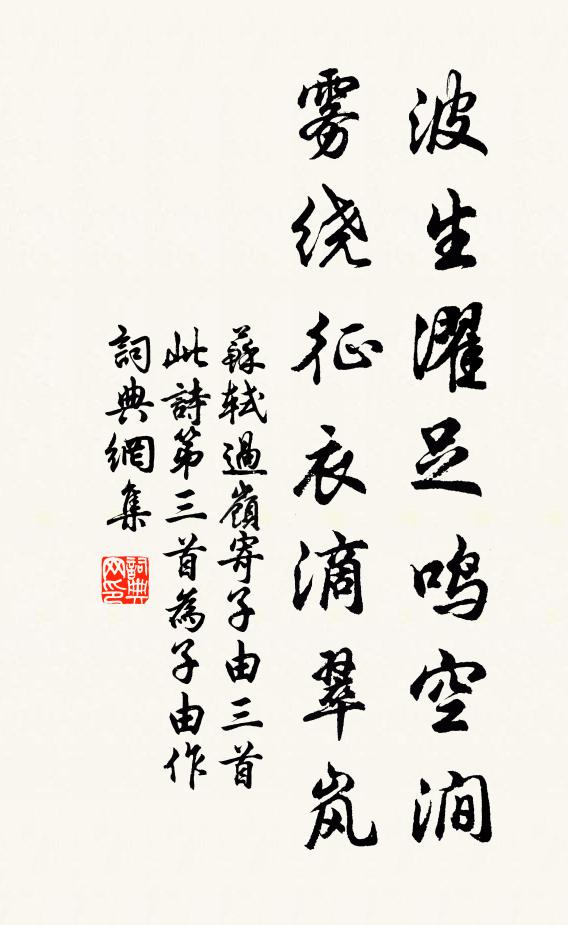 波生濯足鸣空涧
雾绕征衣滴翠岚
蘇軾過嶺寄子由三首
此詩第三首為子由作
詞典網集
詞典网印